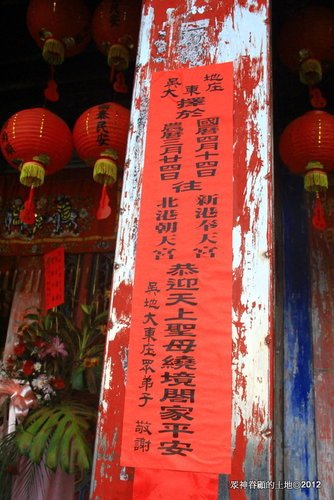 吳地大東庄
擇於
國曆四月十四日
農曆三月廿四日
往
新港奉天宮
北港朝天宮
恭迎天上聖母繞境閤家平安
吳地大東庄眾弟子 敬謝
國泰民安
眾神眷顧的土地©2012